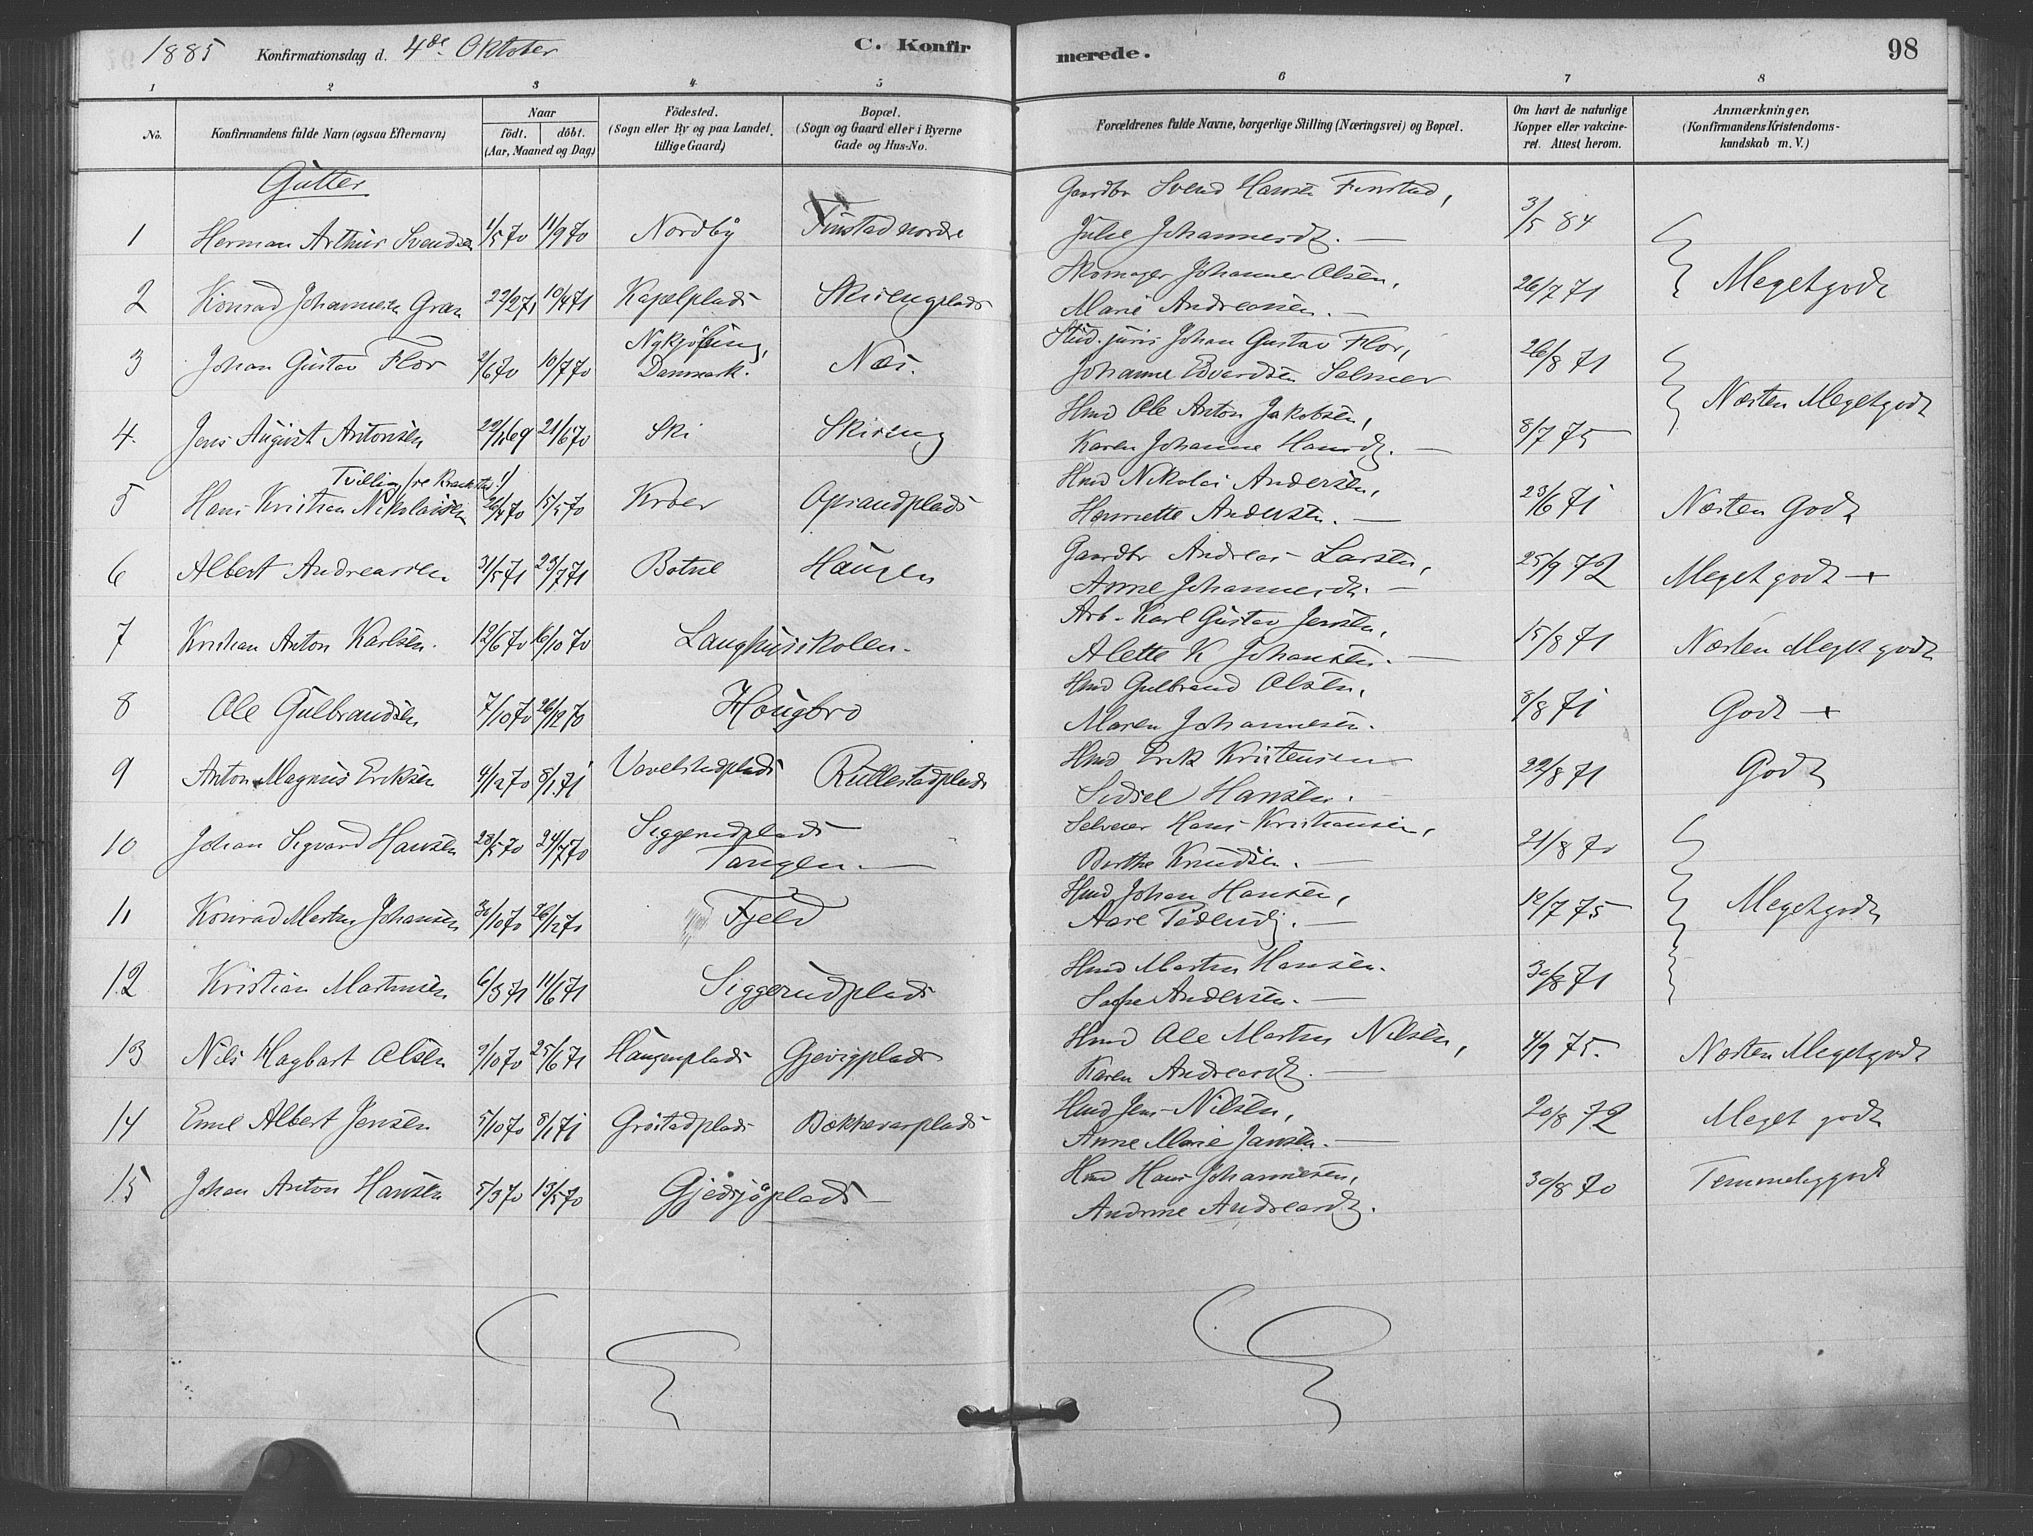 1885 Konfirmationsdag d. 4de Oktober C. Konfirmerede. 98
1 2 3 4 5 6 7 8
No. Konfirmandens fulde Navn (ogsaa Efternavn) Naar födt. döbt. (Aar, Maaned og Dag) Födested. (Sogn eller By og paa Landet tillige Gaard) Bopæl. (Sogn og Gaard eller i Byerne Gade og Hus-No. Forældrenes fulde Navne, borgerlige Stilling (Næringsvei) og Bopæl. Om havt de naturlige Kopper eller vakcineret. Attest herom. Anmærkninger. (Konfirmandens Kristendomskundskab m. V.)
Gutter
1 Herman Arthur Svendsen 1/5 70 11/9 70 Nordby Finstad nordre Gaardbr Svend Hansen Finstad, 3/5 84
Julie Johannesdt. —
2 Konrad Johannesen Gran 22/2 71 10/4 71 Kapelplads Skirengplads Skomager Johannes Olsen, 26/7 71 Megetgodt
Marie Andreassen. —
3 Johan Gustav Flor 2/6 70 10/7 70 Nykjøbing, Danmark. Næs. Stud. juris Johan Gustav Flor, 26/8 71
Johanne Edvardsen Selmer
4. Jens August Antonsen 69 21/6 70 Ski Skireng Hmd Ole Anton Jakobsen, 8/7 75 Næsten Megetgodt
Karen Johanne Hansdt. —
5 Tvilling
Hans Kristian Nikolaisen 26/4 70 15/5 70 Kroer Opsandplads Hmd Nikolai Andersen, 23/6 71 Næsten Godt
Henriette Andersen. —
6 Albert Andreassen 31/5 71 23/7 71 Botne Haugen Gaardbr Andreas Larsen, 25/9 72 Meget godt +
Anne Johannesdt. —
7 Kristian Anton Karlsen. 12/6 70 16/10 70 Langhusskolen. Arb. Karl Gustav Jensen, 15/8 71 Næsten Meget godt
Alette K Johansen. —
8 Ole Gulbrandsen 7/10 70 26/12 70 Hougbro Hmd Gulbrand Olsen, 8/8 71 Godt +
Maren Johannesen.
9 Anton Magnus Eriksen 4/12 70 8/1 71 Vevelstadplads Rullestadplads Hmd Erik Kristensen 22/8 71 Godt
Sidsel Hansen.
10 Johan Sigvard Hansen 23/5 70 24/7 70 Siggerudplads Selveier Hans Kristiansen, 21/8 70
Tangen — Berthe Knudsen. —
11 Konrad Martin Johansen 30/10 70 26/12 70 Fjeld Hmd Johan Hansen, 12/7 75 Megetgodt
Aase Pedersdt. —
12 Kristian Martinsen 6/3 71 11/6 71 Siggerudplads Hmd Martin Hansen. 30/8 71
Sofie Andersen. —
13 Nils Hagbart Olsen 9/10 70 25/6 71 Haugenplads Gjevigplads Hmd Ole Martin Nilsen, 4/9 75. Næsten Megetgodt
Karen Andreasdt. —
14 Emil Albert Jensen 5/10 70 8/1 71 Grøstadplads Bækkevarplads Hmd Jens Nilsen, 20/8 72 Meget godt
Anne Marie Jansen. —
15 Johan Anton Hansen 5/3 70 13/5 70 Gjedsjøplads — Hmd Hans Johannesen, 30/8 70 Temmeliggodt
Andrine Andreasdt.